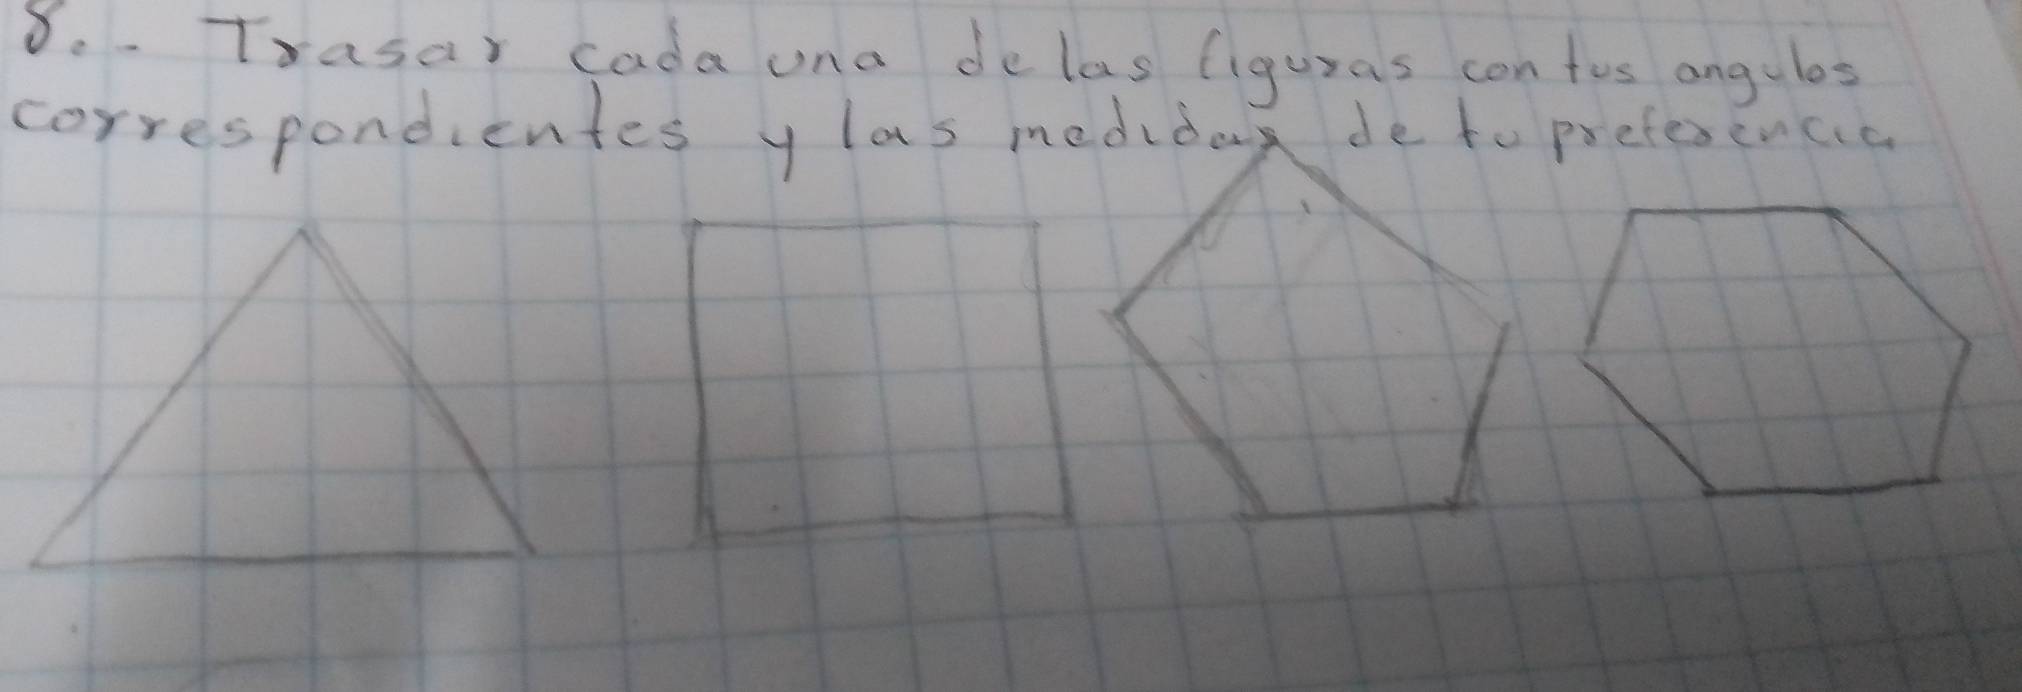 8.- Trasar cada una de las figuras con tus angulos
correspondientes y las medidas de tu preferencia